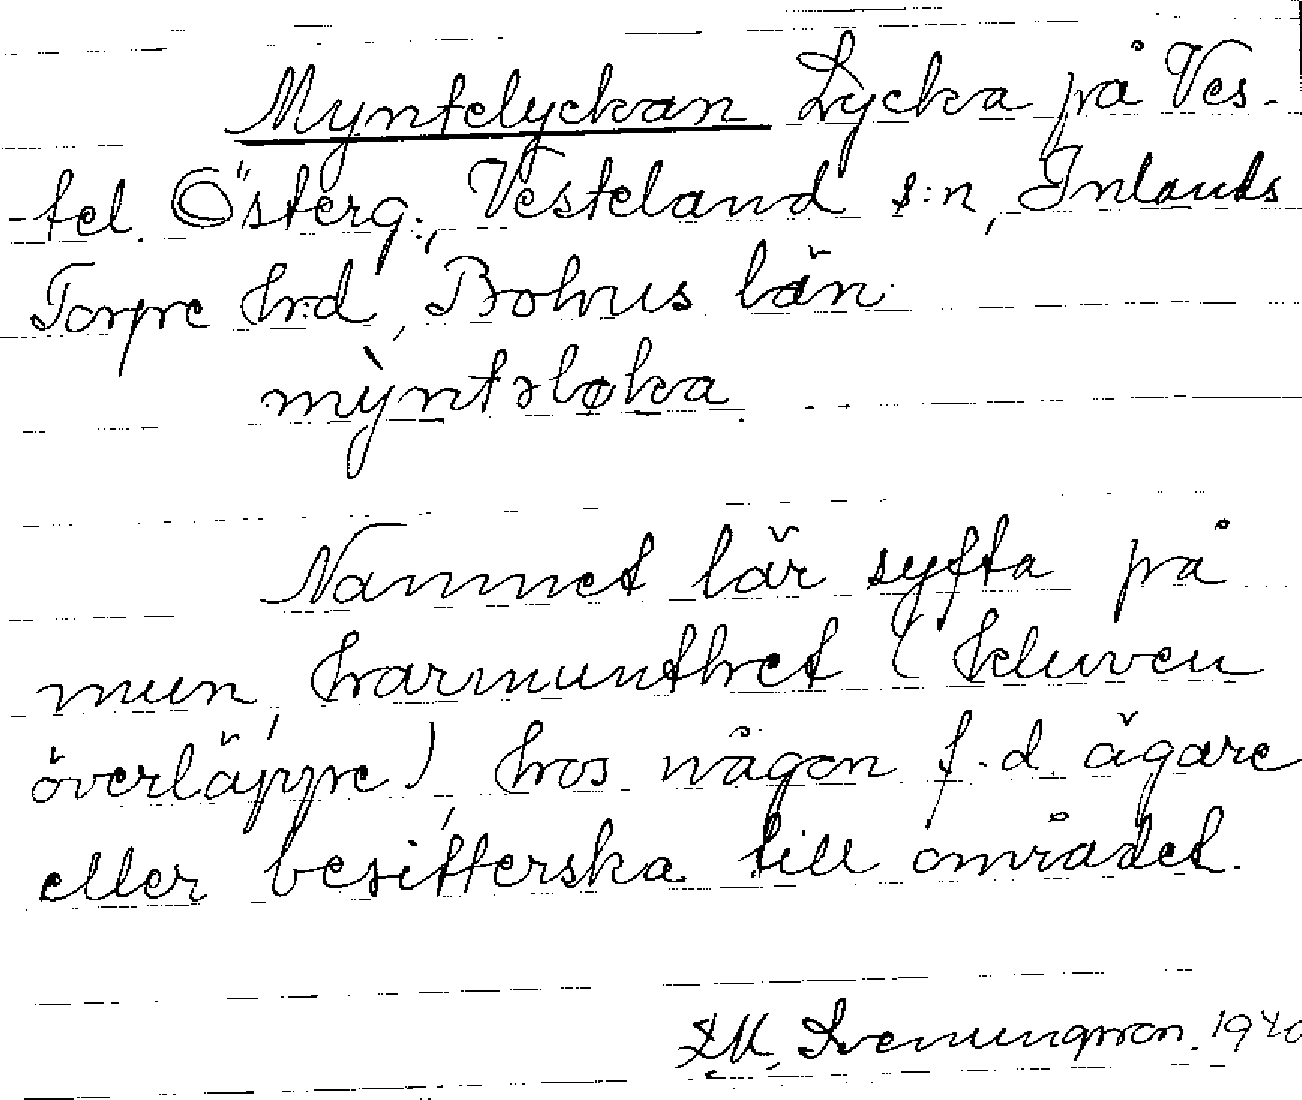 Myntelyckan Lycka på Ves-
-tel. Österg., Vesteland s:n, Inlands
Torpe hrd, Bohus län.
mỳntəløka.
Namnet lär syfta på
mun, harmunthet (kluven
överläppe), hos någon f.d. ägare
eller besitterska till området.
Svenungsson. 1940